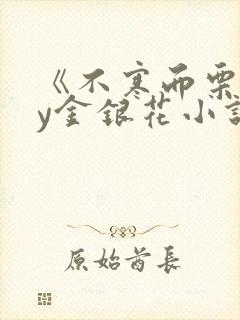 《不寒而栗
y金银花小说
原始酋长